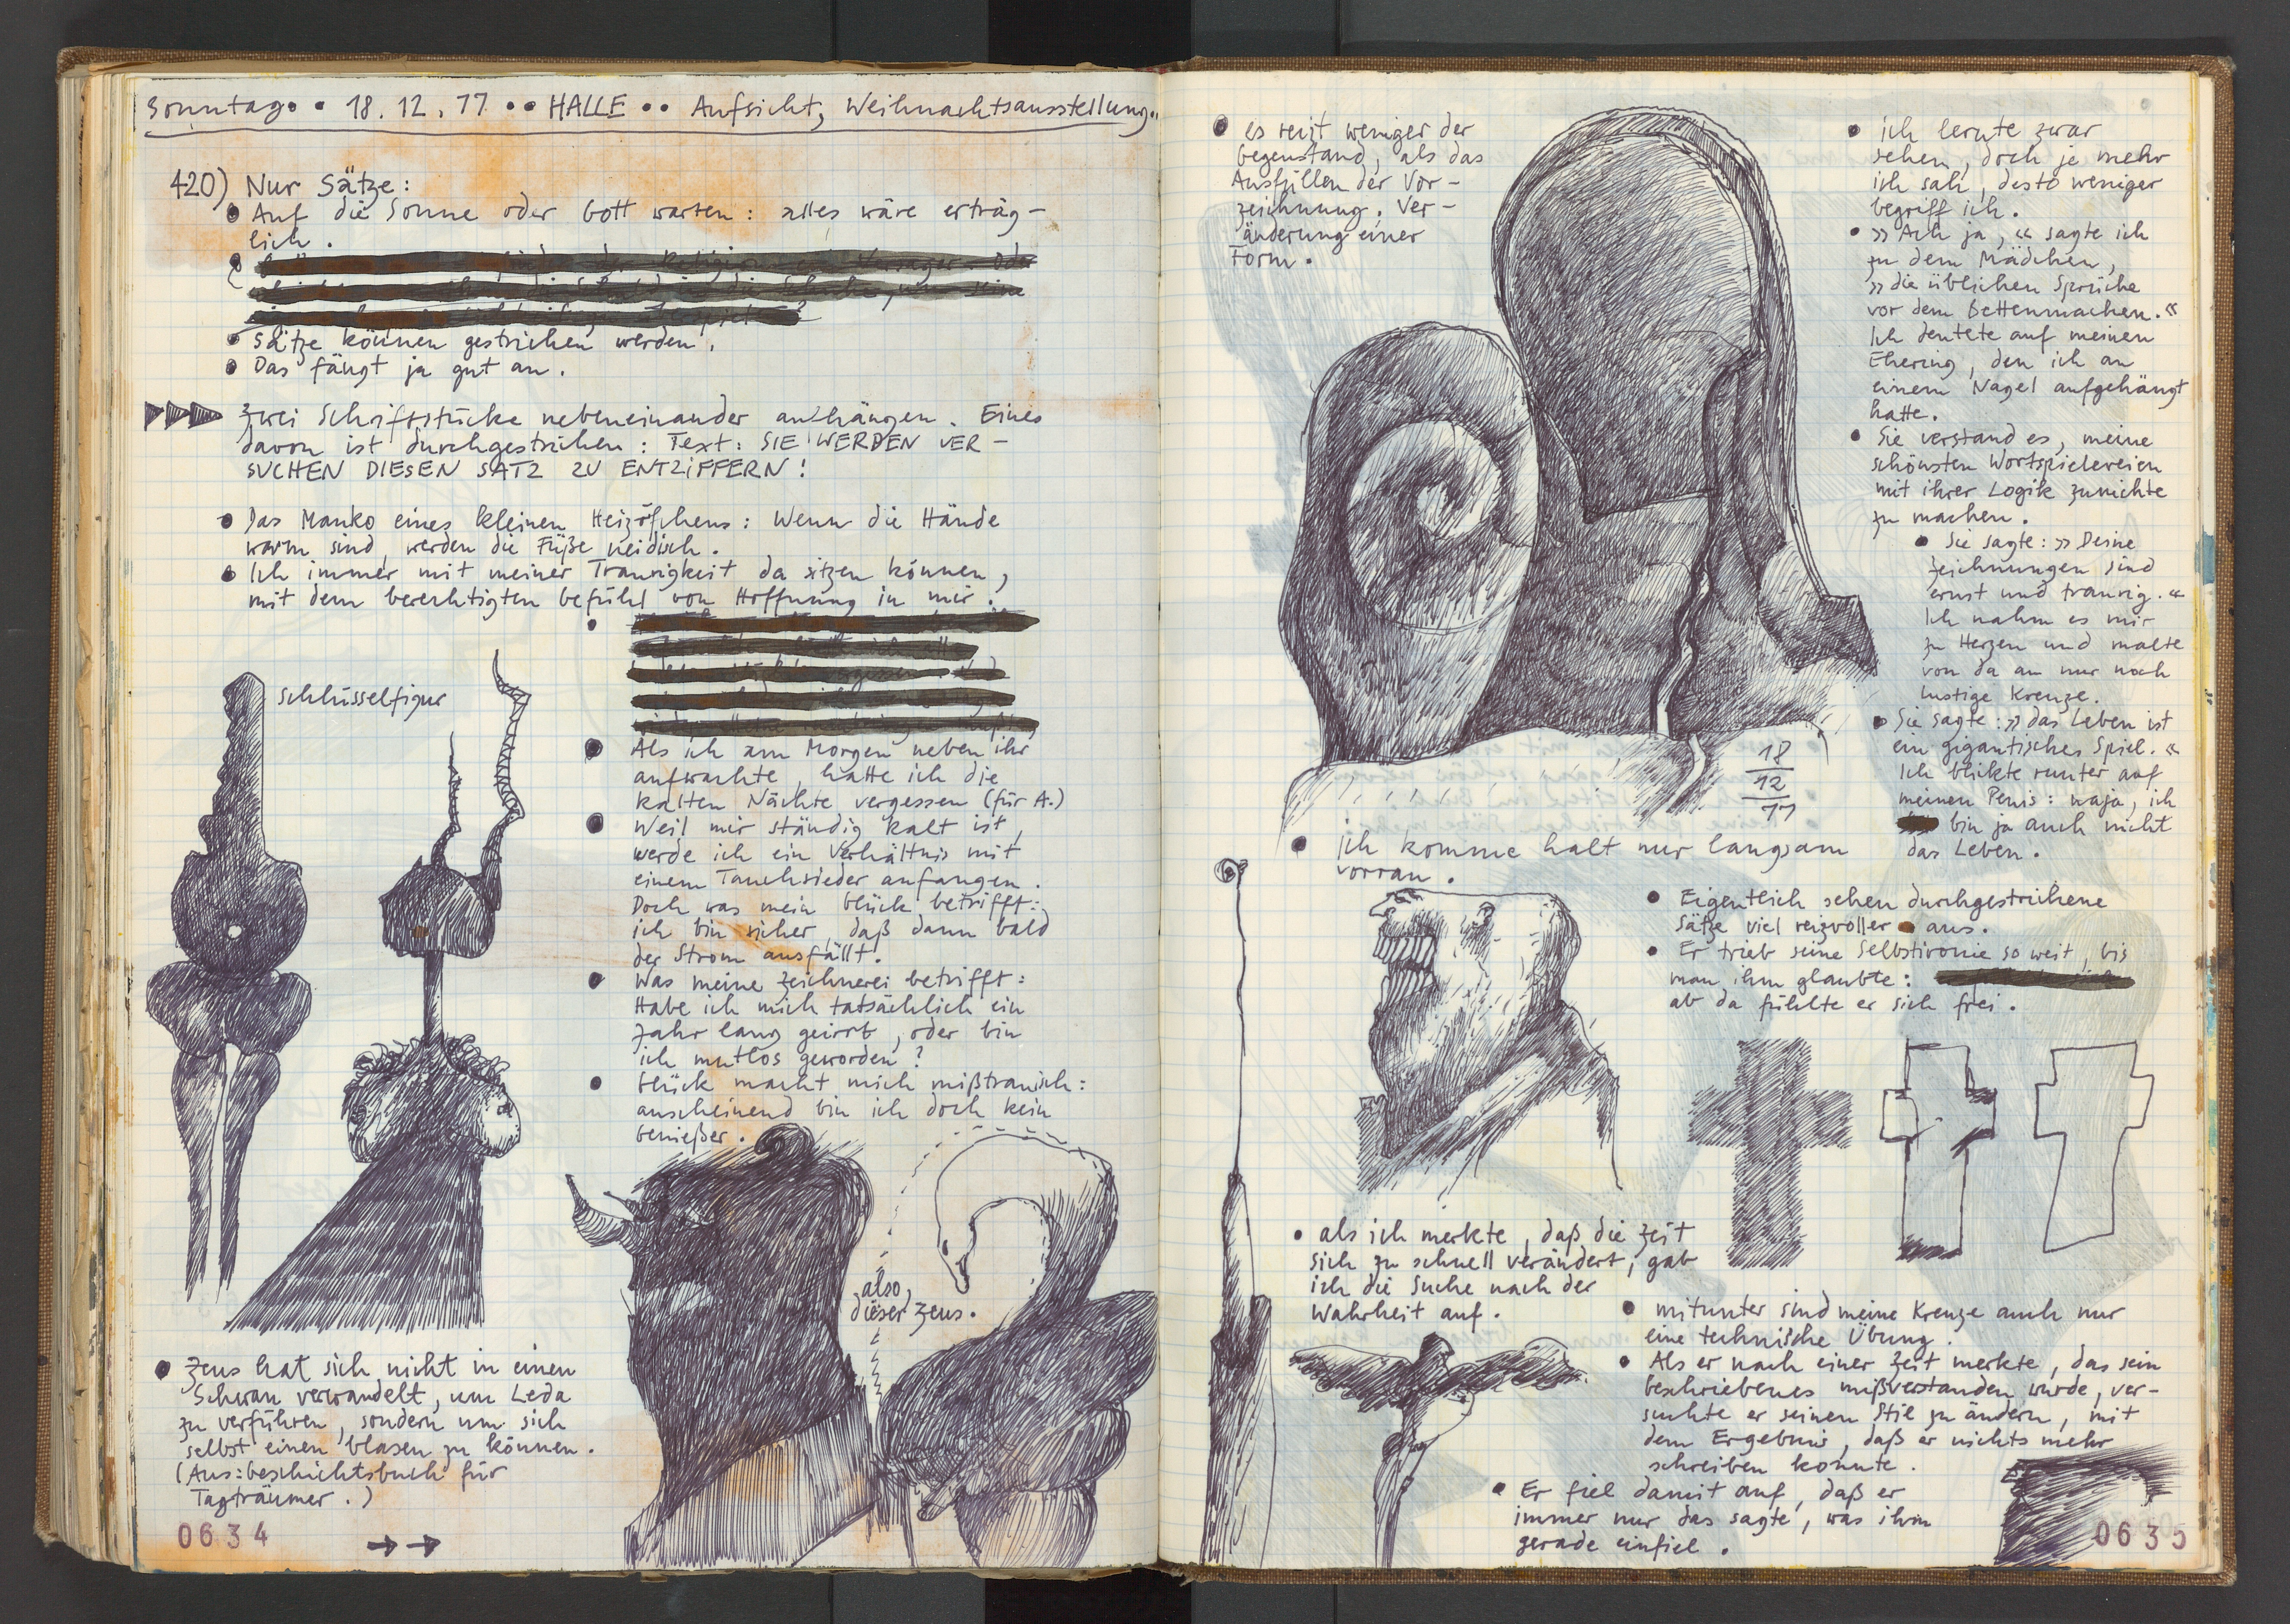 Sonntag • 18.12.77 •• HALLE •• Aufsicht, Weihnachtsausstellung..
420) Nur Sätze:
• Auf die Sonne oder Gott warten: alles wäre erträg-
lich.
• Sätze können gestrichen werden.
• Das fängt ja gut an.
Zwei Schriftstücke nebeneinander aufhängen. Eines
davon ist durchgestrichen: Text: SIE WERDEN VER-
SUCHEN DIESEN SATZ ZU ENTZIFFERN!
• Das Manko eines kleinen Heizöfchens: Wenn die Hände
warm sind, werden die Füße neidisch.
• Ich immer mit meiner Traurigkeit da sitzen können,
mit dem berechtigten Gefühl von Hoffnung in mir.
Schlüsselfigur
• Als ich am Morgen neben ihr
aufwachte, hatte ich die
kalten Nächte vergessen (für A.)
• Weil mir ständig kalt ist,
werde ich ein Verhältnis mit
einem Tauchsieder anfangen.
Doch was mein Glück betrifft:
ich bin sicher, daß dann bald
der Strom ausfällt.
• Was meine Zeichnerei betrifft:
Habe ich mich tatsächlich ein
Jahr lang geirrt, oder bin
ich mutlos geworden?
• Glück macht mich mißtrauisch:
anscheinend bin ich doch kein
Genießer.
also,
dieser Zeus.
• Zeus hat sich nicht in einen
Schwan verwandelt, um Leda
zu verführen, sondern um sich
selbst einen blasen zu können.
(Aus: Geschichtsbuch für
Tagträumer.)
0634
• es reizt weniger der
Gegenstand, als das
Ausfüllen der Vor-
zeichnung. Ver-
änderung einer
Form.
18
12
77
• ich komme halt nur langsam
vorran.
• ich lernte zwar
sehen, doch je mehr
ich sah, desto weniger
begriff ich.
• »Ach ja,« sagte ich
zu dem Mädchen,
»die üblichen Sprüche
vor dem Bettenmachen.«
Ich deutete auf meinen
Ehering, den ich an
einem Nagel aufgehängt
hatte.
• Sie verstand es, meine
schönsten Wortspielereien
mit ihrer Logik zunichte
zu machen.
• Sie sagte: »Deine
Zeichnungen sind
ernst und traurig.«
Ich nahm es mir
zu Herzen und malte
von da an nur noch
lustige Kreuze.
• Sie sagte: »das Leben ist
ein gigantisches Spiel.«
Ich blickte runter auf
meinen Penis: naja, ich
bin ja auch nicht
das Leben.
• Eigentlich sehen durchgestrichene
Sätze viel reizvoller aus.
• Er trieb seine Selbstironie so weit, bis
man ihm glaubte:
ab da fühlte er sich frei.
• als ich merkte, daß die Zeit
sich zu schnell verändert, gab
ich die Suche nach der
Wahrheit auf.
• mitunter sind meine Kreuze auch nur
eine technische Übung.
• Als er nach einer Zeit merkte, das sein
beschriebenes mißverstanden wurde, ver-
suchte er seinen Stil zu ändern, mit
dem Ergebnis, daß er nichts mehr
schreiben konnte.
• Er fiel damit auf, daß er
immer nur das sagte, was ihm
gerade einfiel.
0635